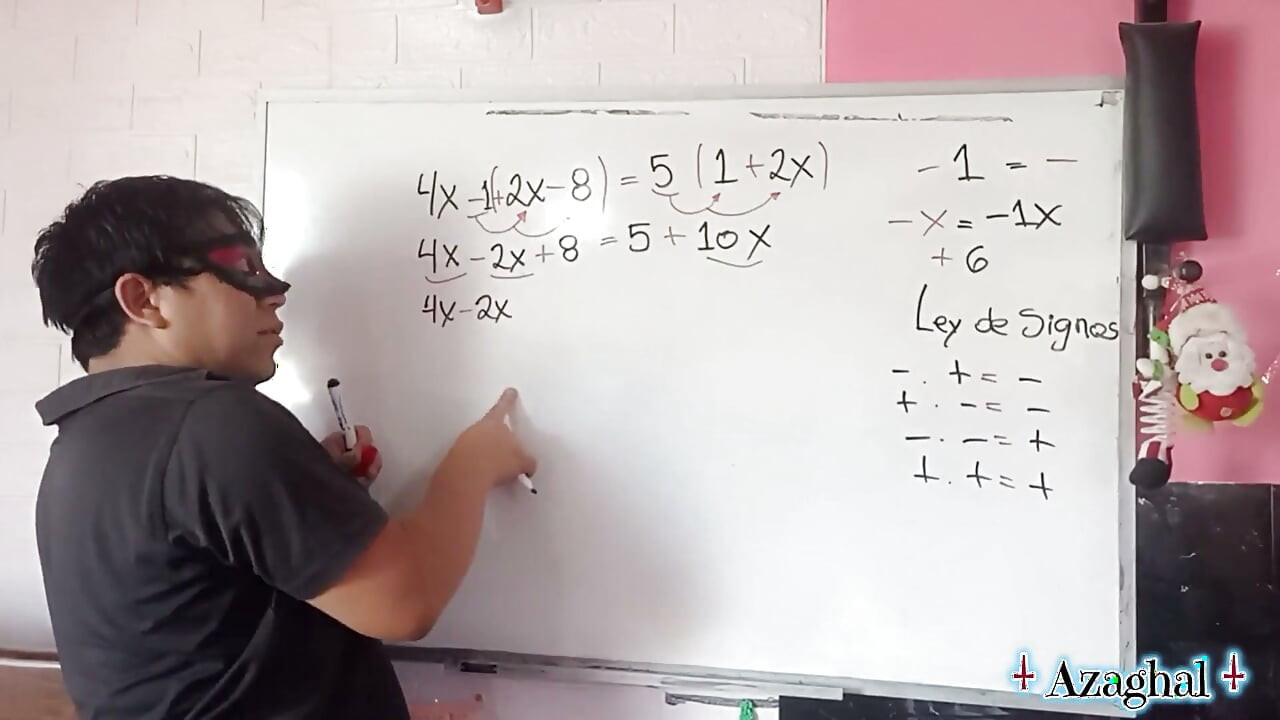 4x - 1(+2x - 8) = 5 (1 + 2x)
4x - 2x + 8 = 5 + 10x
4x - 2x
- 1 = -
- x = -1x
+ 6
Ley de Signos
- . + = -
+ . - = -
- . - = +
+ . + = +
Azaghal